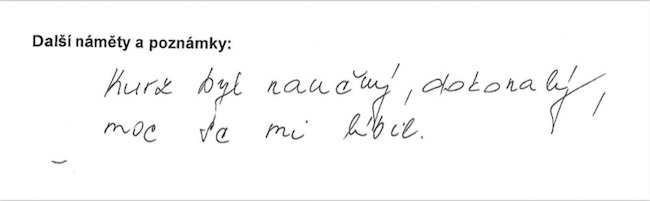 Další náměty a poznámky:
Kurz byl naučný, dokonalý,
moc se mi líbil.